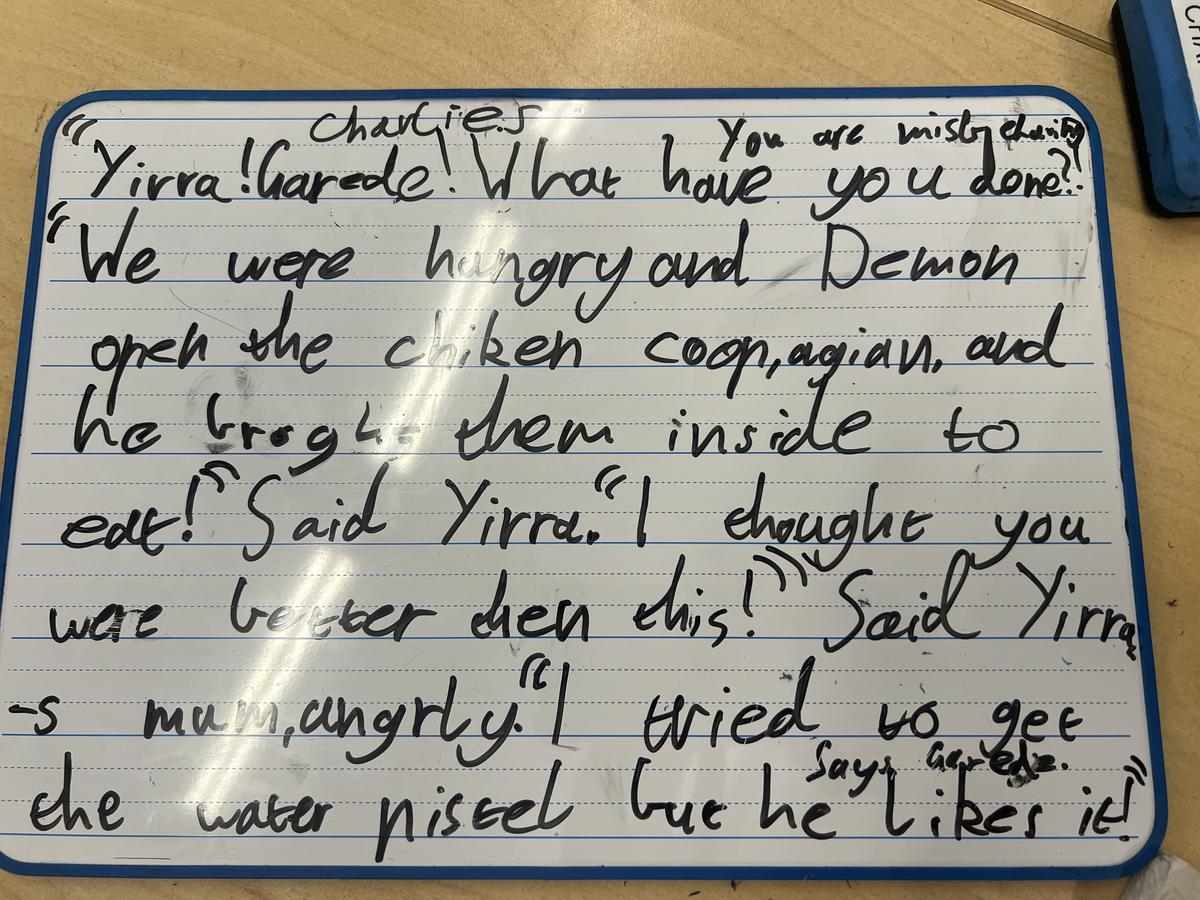 Charlies
You are misbehaving
"Yirra! Garede! What have you done?!
"We were hungry and Demon
open the chiken coop, agian, and
he broght them inside to
eat!" Said Yirra. "I thought you
were better then this!" Said Yirra
-s mum, angrly. "I tried to get
Says Garede.
the water pistel but he likes it!"
CHA